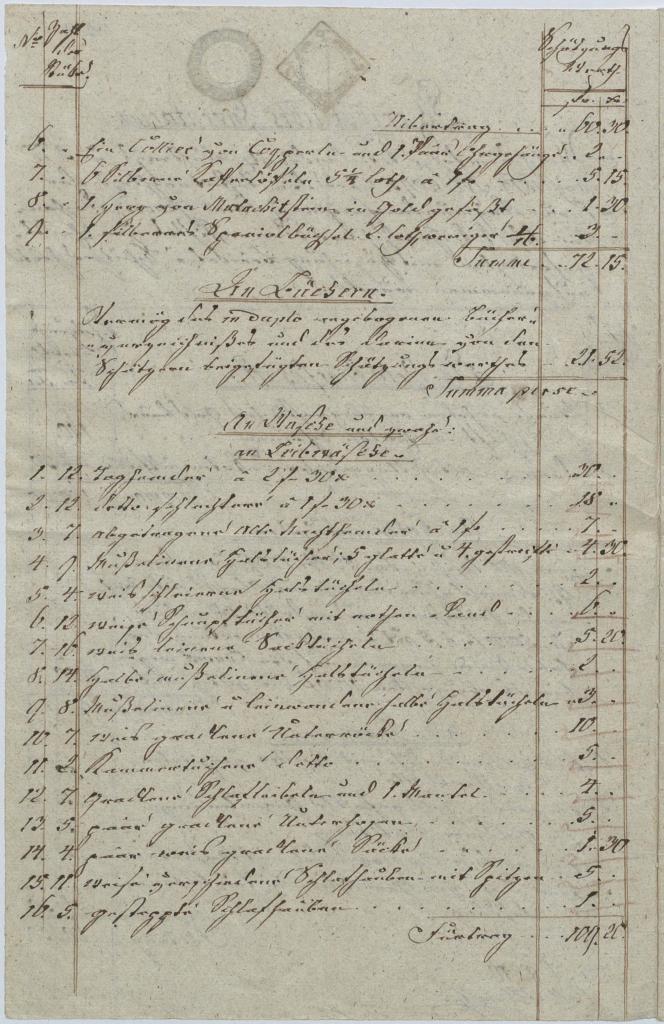 Nro Zahl der Stüke.
Schätzungs Werth
fr. x.
Uibertrag . . . 60. 30.
6. Ein Collier von und 1. Paar Ohrgehänge . . 2. -
7. 6 Silberne Kaffelöffeln 5½ Loth à 1 f . . 5. 15
8. 1. Herz von Malachitstein in Gold gefaßt . . 1. 30.
9. 1. silbernes Büchsel 2. Loth weniger 1/16 . . 3. -
Summe . . 72. 15.
An Büchern.
Vermög des in Duplo Bücher-
verzeichnißes und des darinn von den
Schätzern beigefügten Schätzungswerthes . . 21. 52
Summa per se
An Wäsche und zwar:
an Leibwäsche
1. 12. Taghemder à 2 f 30 x . . . 30. -
2. 12 detto schlechtere à 1 f 30 x . . . 18. -
3. 7 abgetragene alte Nachthemder à 1 f . . 7. -
4. 9. Mußelinene Halstücher, 5 glatte u 4. gestreifte . . 4. 30
5. 4. weis Halstücheln . . . 2. -
6. 12 weiße Schnupftücher mit rothen Rand . . . 6. -
7. 16 weis leinene Sacktücheln . . . 5. 20.
8. 14. Halbe mußelinene Halstücheln . . . 2. -
9. 8. Mußelinene u leinwandene halbe Halstücheln . . 3. -
10. 7. weis gradlene Unterröcke . . . 10. -
11. 2. Kammertuchene detto . . . 5. -
12. 7. gradlene Schlafleibeln und 1. Mantel . . . 4. -
13. 5. paar gradlene Unterhosen . . . 5. -
14. 4. paar weis gradlene Säcke . . . 1. 30
15. 11. weiße verschiedene Schlafhauben mit Spitzen . . 5. -
16. 5. gesteppte Schlafhauben . . . 1. -
Fürtrag . . . 109. 20.